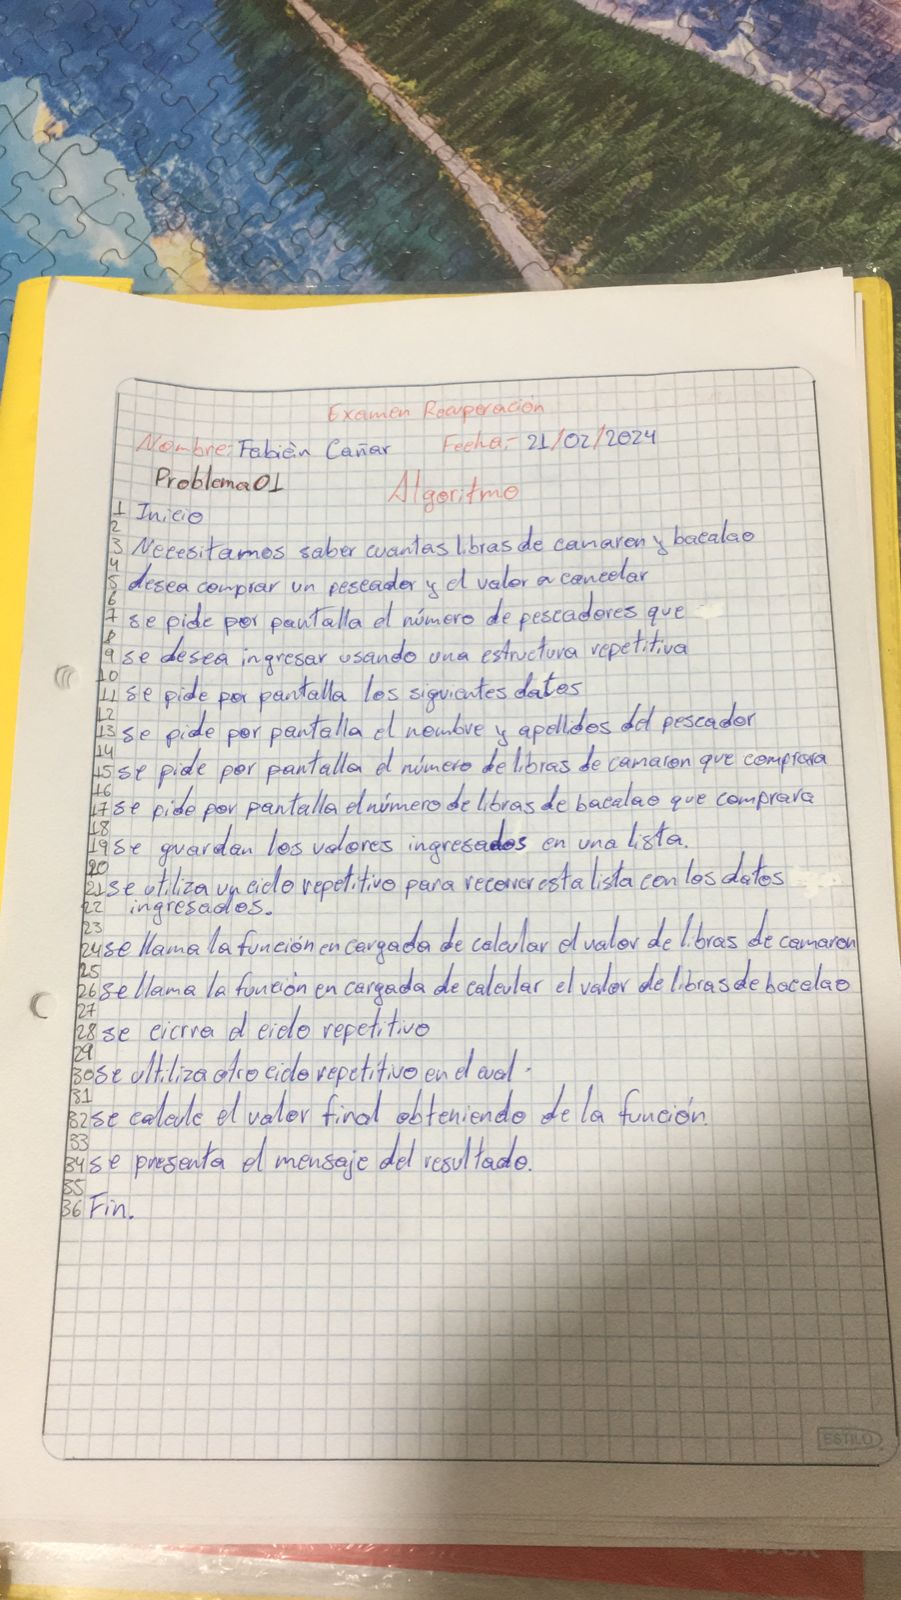 Examen Recuperación
Nombre: Fabièn Cañar Fecha:- 21/02/2024
Problema01 Algoritmo
1 Inicio
2
3 Necesitamos saber cuantas libras de camaron y bacalao
4
5 desea comprar un pescador y el valor a cancelar
6
7 se pide por pantalla el número de pescadores que
8
9 se desea ingresar usando una estructura repetitiva
10
11 se pide por pantalla los siguientes datos
12
13 se pide por pantalla el nombre y apellidos del pescador
14
15 se pide por pantalla el número de libras de camaron que comprara
16
17 se pide por pantalla el número de libras de bacalao que comprara
18
19 se guardan los valores ingresados en una lista.
20
21 se utiliza un ciclo repetitivo para recorrer esta lista con los datos
22 ingresados.
23
24 se llama la función en cargada de calcular el valor de libras de camaron
25
26 se llama la función en cargada de calcular el valor de libras de bacalao
27
28 se cierra el ciclo repetitivo
29
30 se ultiliza otro ciclo repetitivo en el cual.
31
32 se calcule el valor final obteniendo de la función.
33
34 se presenta el mensaje del resultado.
35
36 Fin.
ESTILO